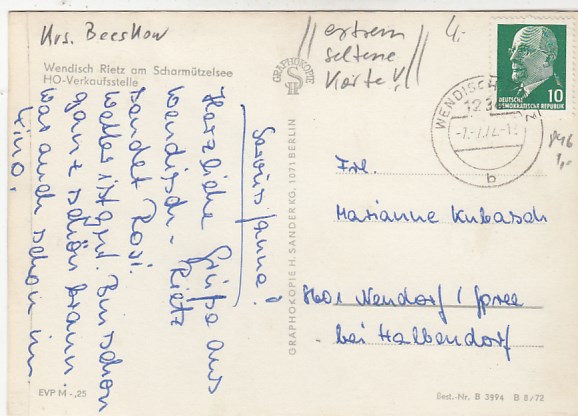 Krs. Beeskow
Wendisch Rietz am Scharmützelsee
HO-Verkaufsstelle
Servus Janna!
Herzliche Grüße aus
Wendisch-Rietz
sendet Rosi.
Wetter ist gut. Bin schon
ganz schön braun.
War auch schon im
Kino.
EVP M -,25
GRAPHOKOPIE
GRAPHOKOPIE H. SANDER KG, 1071 BERLIN
extrem
seltene
Karte!
4,-
DEUTSCHE
DEMOKRATISCHE REPUBLIK
10
WENDISCH
123
b
1,-
Frl.
Marianne Kubasch
Nendorf / Spree
bei Halbendorf
Best.-Nr. B 3994 B 8/72